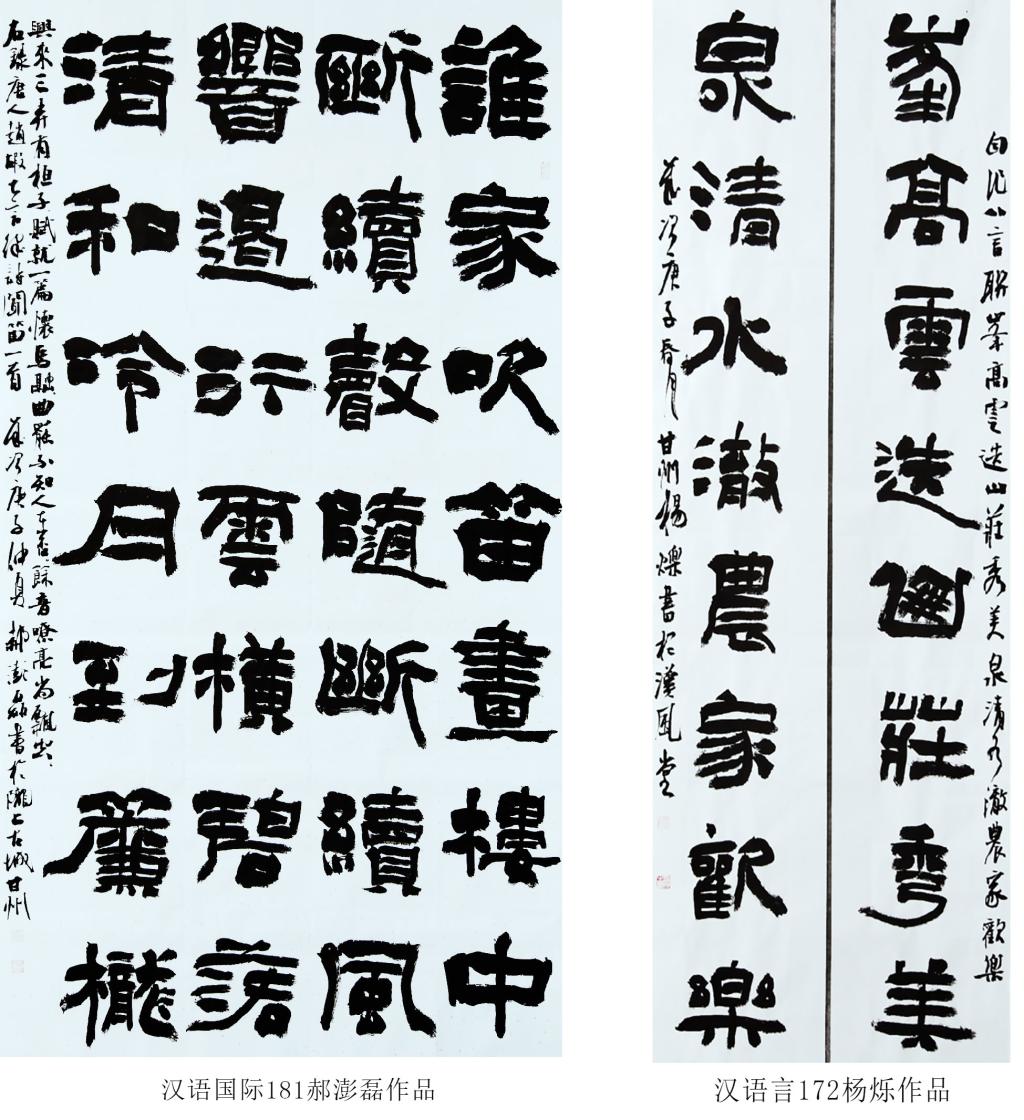 誰家吹笛畫樓中
斷續聲隨斷續風
響遏行雲橫碧落
清和冷月到簾櫳
興來三弄有桓子賦就一篇懷馬融曲罷不知人在否餘音嘹亮尚飄空
右錄唐人趙嘏七言律詩聞笛一首 歲次庚子仲夏 郝澎磊書於隴上古城甘州
汉语国际181郝澎磊作品
八言聯峯高雲迭山莊秀美泉清水澈農家歡樂
峯高雲迭山莊秀美
泉清水澈農家歡樂
歲次庚子春月甘州楊爍書於漢風堂
汉语言172杨烁作品